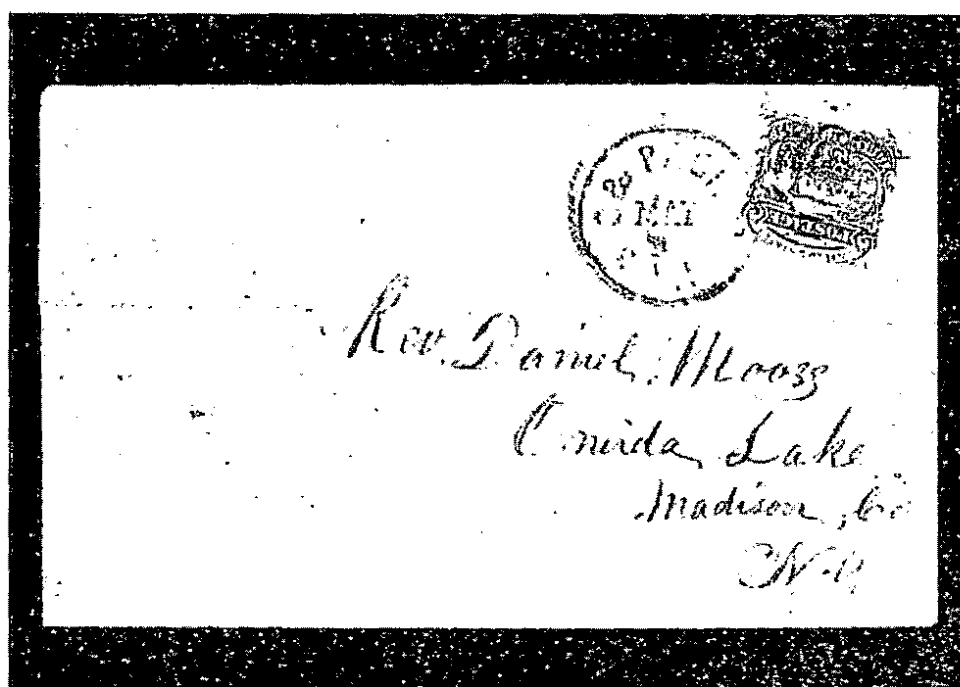 MAY
Rev. Daniel Mooze
Oneida Lake
Madison, Co
N.Y.